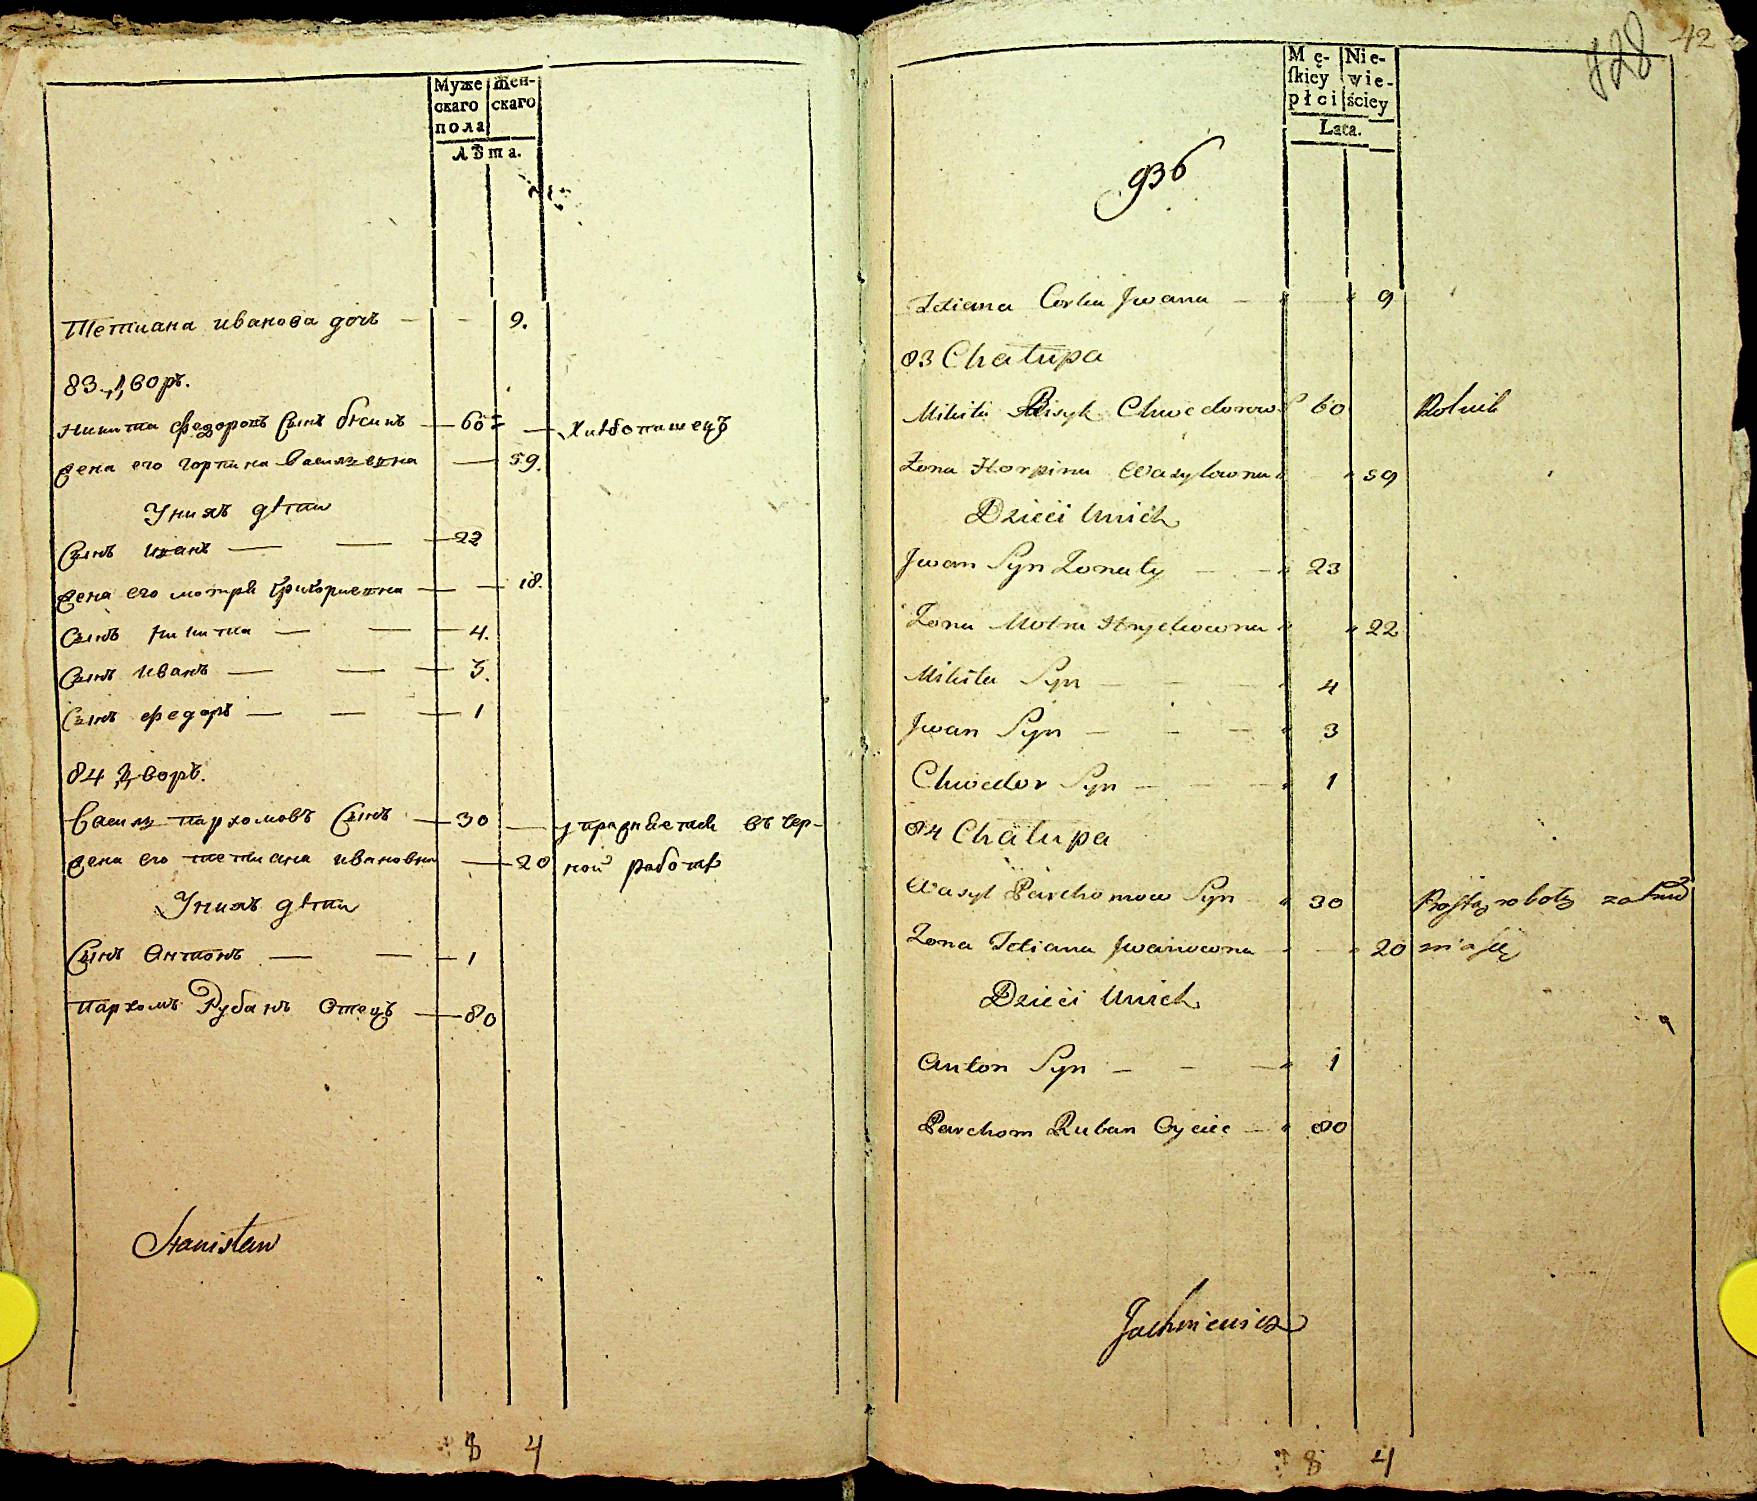 Муже
скаго
пола
Жен-
скаго
Лѣта.
Тетиана иванова дочь — — 9.
83. Дворъ.
Никита федоровъ Сынъ — 60 — Хлѣбопашецъ
жена его горпина васильевна — 59.
У нихъ дѣти
Сынъ иванъ — — 22
жена его мотря григориевна — — 18.
Сынъ никита — — 4.
Сынъ иванъ — — 3.
Сынъ федоръ — — 1
84 Дворъ.
Василь пархомовъ Сынъ — 30 — упражняется въ чер-
жена его тетиана ивановна — 20 ной работѣ
У нихъ дѣти
Сынъ Антонъ — — 1
пархомъ Рубанъ Отецъ — 80
Stanisław
8 4
428 42
Mę-
ſkiey
płci
Nie-
wie-
ściey
Lata.
936
Tetiana Corka Jwana — 9
83 Chałupa
Mikita Bisyk Chwedorow S 60 Rolnik
Żona Horpina Wasylowna 59
Dzieci Unich
Jwan Syn Żonaty — — 23
Żona Motra Hryhorowna 22
Mikita Syn — — — 4
Jwan Syn — — — 3
Chwedor Syn — — — 1
84 Chałupa
Wasyl Parchomow Syn 30 Prostą robotą zatrud
Żona Tetiana Jwanowna — 20 nia się
Dzieci Unich
Anton Syn — — — 1
Parchom Ruban Oyciec — 80
Jachniewicz
8 4